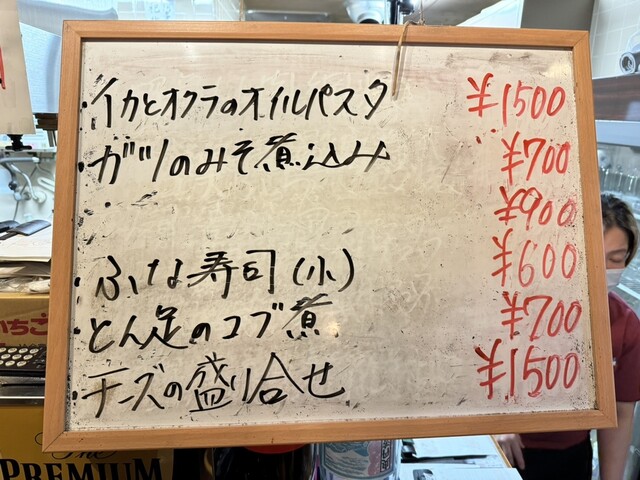 ・イカとオクラのオイルパスタ ¥1500
・ガツのみそ煮込み ¥700
・ ¥900
・ふな寿司(小) ¥600
・とん足のコブ煮 ¥700
・チーズの盛り合せ ¥1500
いちご
The
PREMIUM